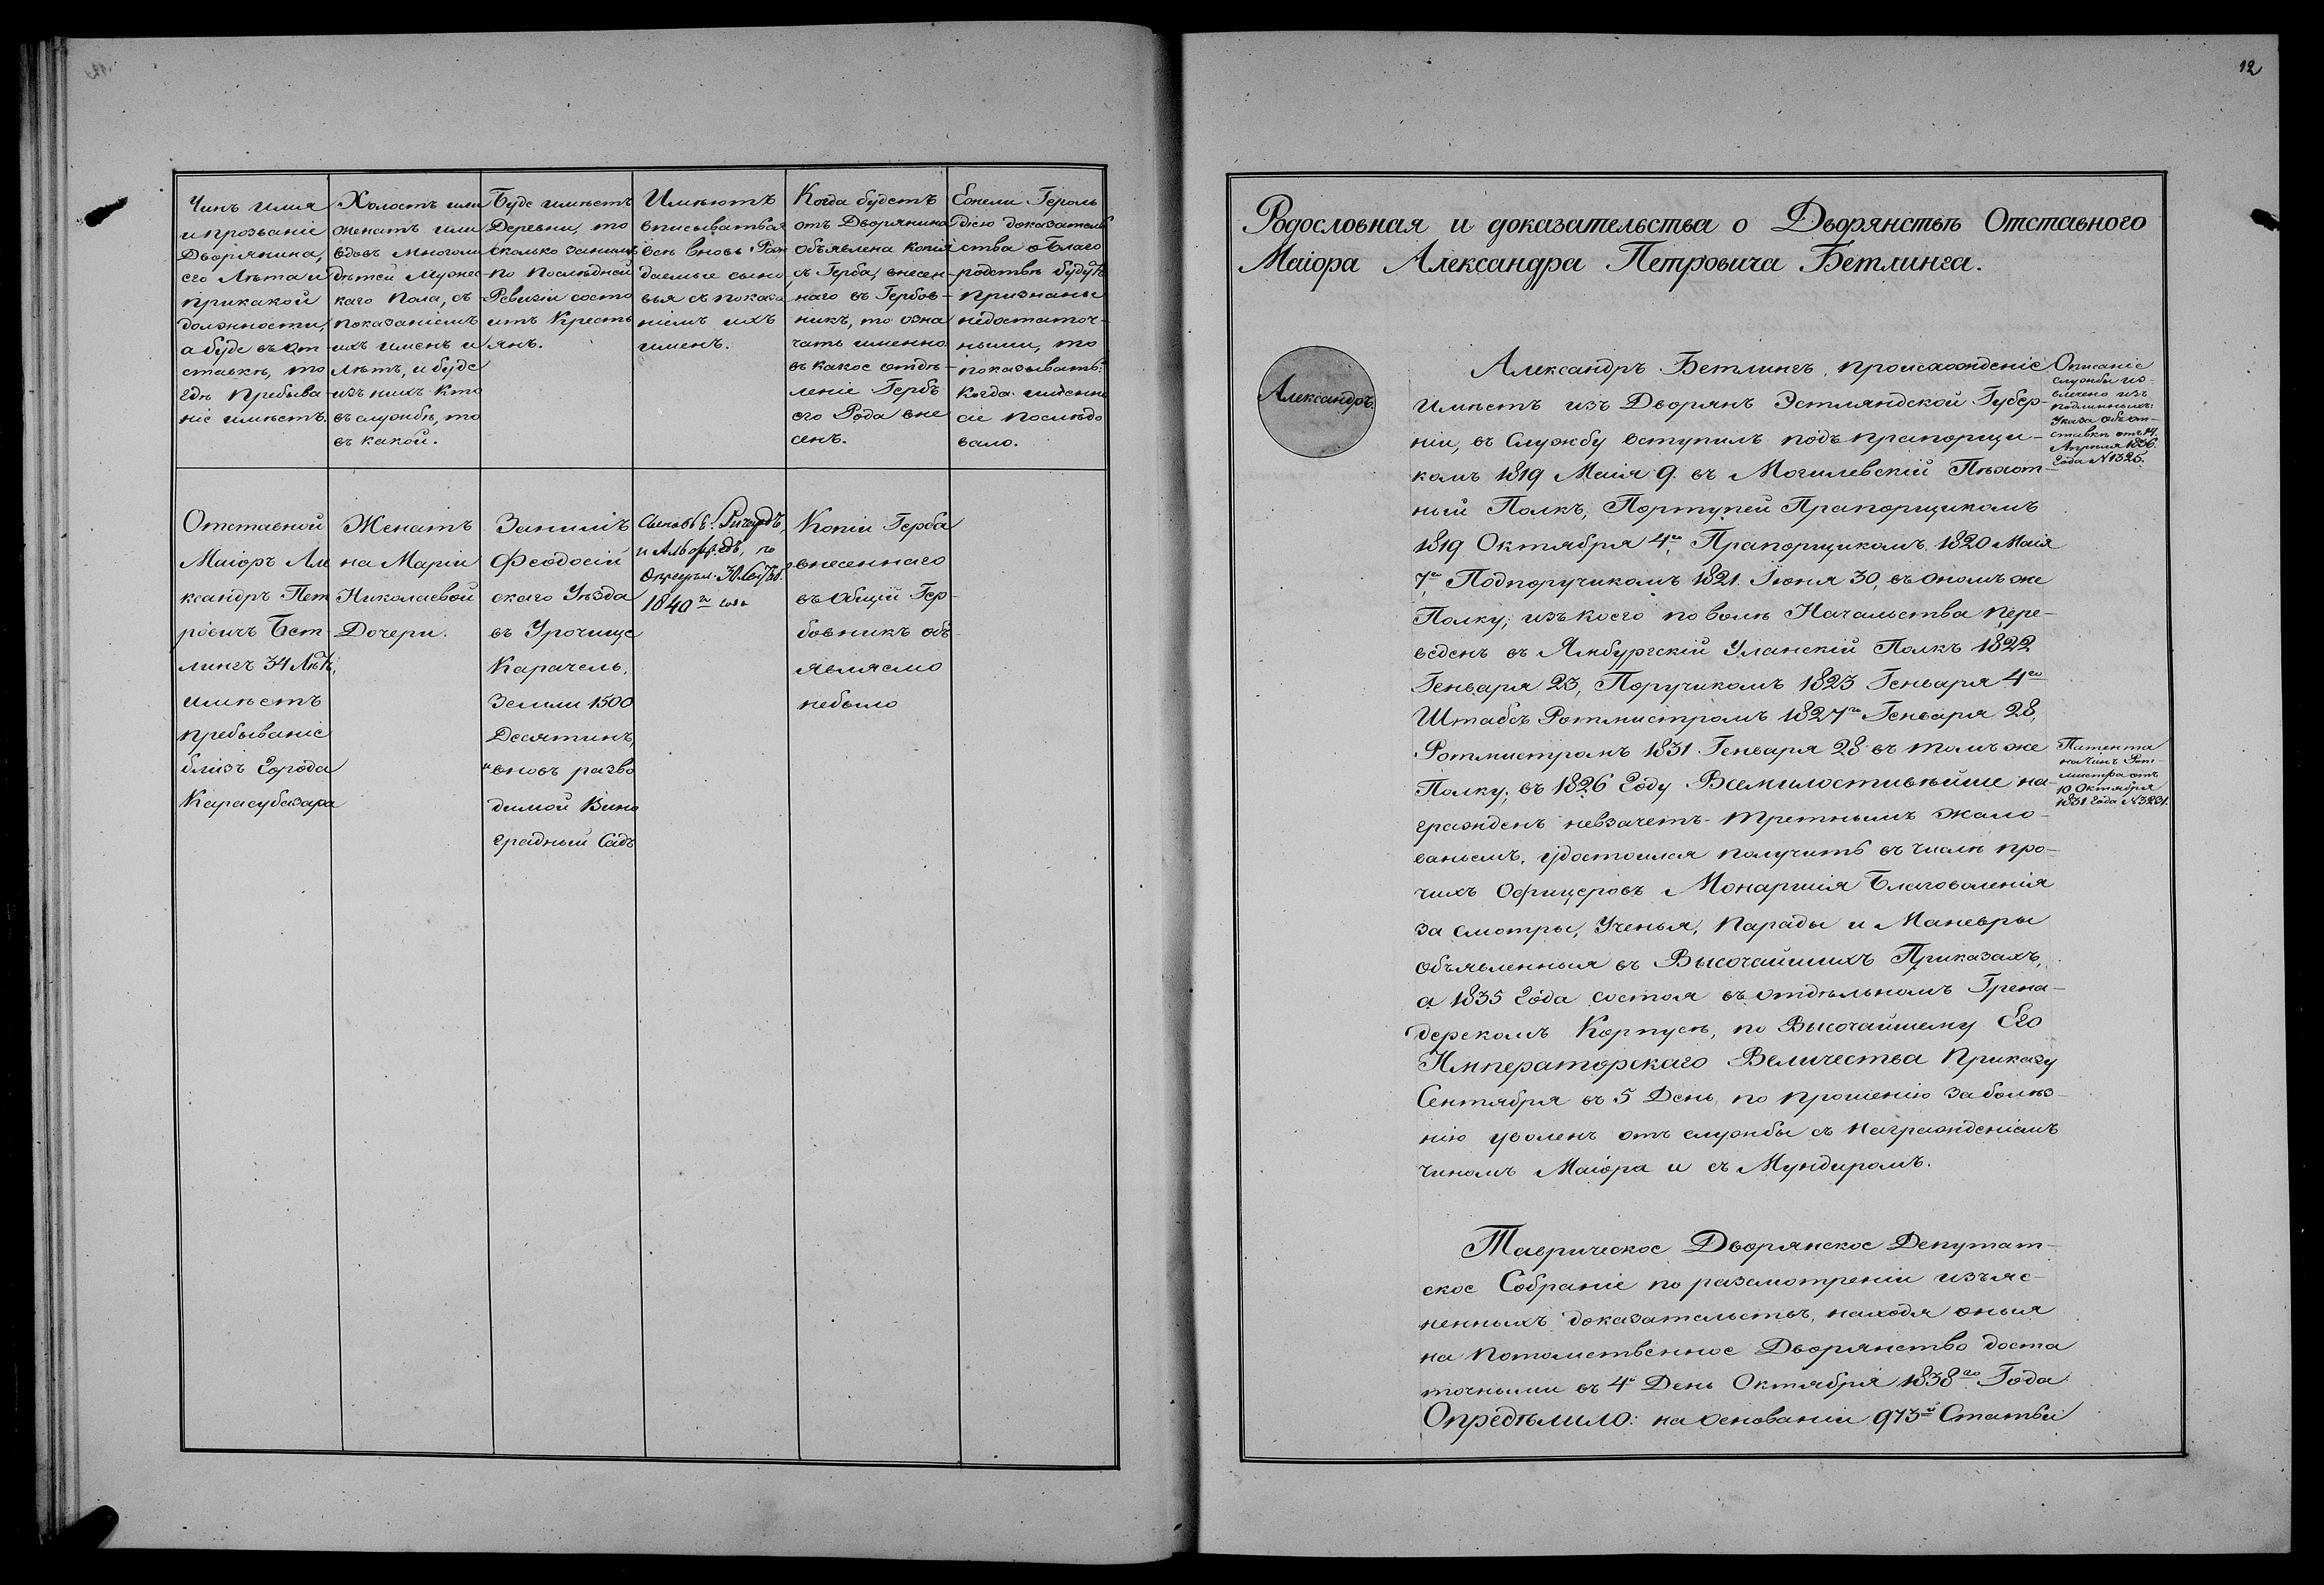 Чинъ имя
и прозваніе
Дворянина,
его Лѣта и
при какой
должности,
а буде въ от
ставкѣ, то
гдѣ пребыва
ніе имѣетъ.
Холостъ или
женатъ или
вдовъ многоли
дѣтей Мужес
каго пола, съ
показаніемъ
ихъ именъ и
Лѣтъ, и буде
изъ нихъ кто
въ службѣ, то
въ какой.
Буде имѣетъ
Деревни, то
сколько за нимъ
по Послѣдней
Ревизіи состо
итъ Кресть
янъ.
Имѣютъ
вписыватьея
всѣ вновь Рож
даемые сыно
вья съ показа
ніемъ ихъ
именъ.
Когда будетъ
отъ Дворянина
объявлена копія
съ Герба, внесен-
наго въ Гербов-
никъ, то озна
чать именно
въ какое отдѣ-
леніе Гербъ
его Рода вне
сенъ.
Ежели Героль
діею доказатель
ства о Благо
родствѣ будутъ
признаны
недостаточ-
ными, то
показывать:
когда именно
сіе послѣдо
вало.
Отставной
Маіоръ Але
ксандръ Пет
ровичъ Бет-
лингъ 34 Лѣтъ,
имѣетъ
пребываніе
близъ Города
Карасубазара
Женатъ
на Маріи
Николаевой
Дочери.
За нимъ
Феодосій
скаго Уѣзда
въ Урочище
Карачель,
Земли 1500
Десятинъ,
и вновь разво
димой Вино
градный Садъ
Сыновья: Ричардъ,
и Альфредъ, по
Опредѣл. 30. Сентяб.
1840го года
Копіи Герба
внесеннаго
въ Общій Гер-
бовникъ объ-
являемо
небыло
12
Родословная и доказательства о Дворянствѣ Отставного
Маіора Александра Петровича Бетлинга.
Александръ.
Александръ Бетлингъ, происхожденіе
Имѣетъ изъ Дворянъ Эстляндской Губер-
ніи, въ Службу вступилъ подъ прапорщи-
комъ 1819 Маія 9. въ Могилевскій Пѣхот-
ный Полкъ, Портупей Прапорщикомъ
1819 Октября 4го, Прапорщикомъ 1820 Маія
7го, Подпоручикомъ 1821. Іюня 30, въ ономъ же
Полку; изъ коего по волѣ Начальства пере-
веденъ въ Ямбургскій Уланскій Полкъ 1822
Генваря 23, Поручикомъ 1823 Генваря 4го
Штабсъ Ротмистромъ 1827го Генваря 28,
Ротмистромъ 1831 Генваря 28 въ томъ же
Полку; въ 1826 Году Всемилостивѣйше на-
гражденъ невзачетъ- третнымъ жало-
ваньемъ, удостоился получить въ числѣ про-
чихъ Офицеровъ Монаршія Благоволенія
за смотры, Ученья, Парады и Маневры
объявленныя въ Высочайшихъ Приказахъ,
а 1835 Года состоя въ отдѣльномъ Грена-
дерскомъ Корпусѣ, по Высочайшему Его
Императорскаго Величества Приказу
Сентября въ 5 День, по прошенію за болѣз-
нію уволенъ отъ службы съ награжденіемъ
чиномъ Маіора и съ Мундиромъ.
Описаніе
службы из-
влечено изъ
подлинныхъ:
Указа объ от-
ставкѣ отъ 14.
Апрѣля 1836.
Года №1325.
Патента
на чинъ Рот-
мистра отъ
10 Октября
1831 Года №3231.
Таврическое Дворянское Депутат-
ское Собраніе по разсмотреніи изъяс-
ненныхъ доказательствъ, находя оныя
на Потомственное Дворянство доста
точными въ 4й День Октября 1838го Года
Опредѣлило: на основаніи 973й Статьи